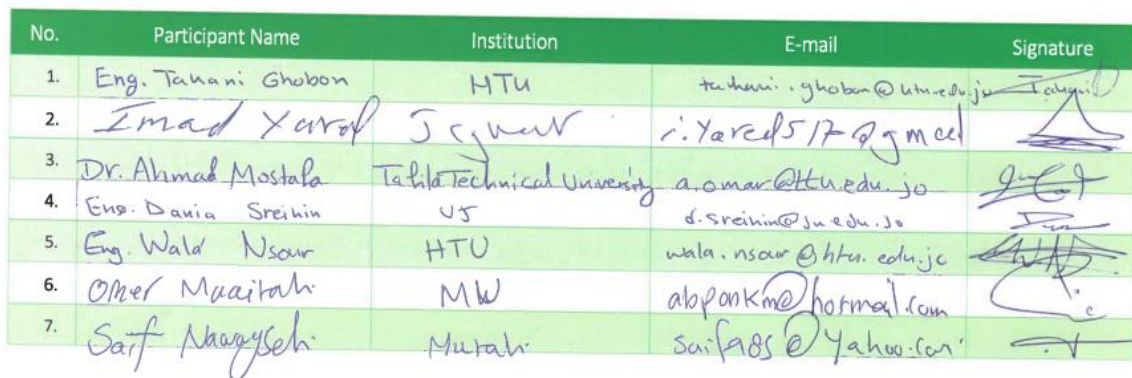 No. Participant Name Institution E-mail Signature
1. Eng. Tahani Ghobon HTU tahani.ghobon@htu.edu.jo Tahani
2. Imad Yared
3. Dr. Ahmad Mostafa Tafila Technical University a.omar@ttu.edu.jo
4. Eng. Dania Sreihin UJ d.sreihin@ju.edu.jo
5. Eng. Wala Nsour HTU wala.nsour@htu.edu.jo
6. Omer Maaitah MW @hotmail.com
7. Saif Mutah saif985@yahoo.com